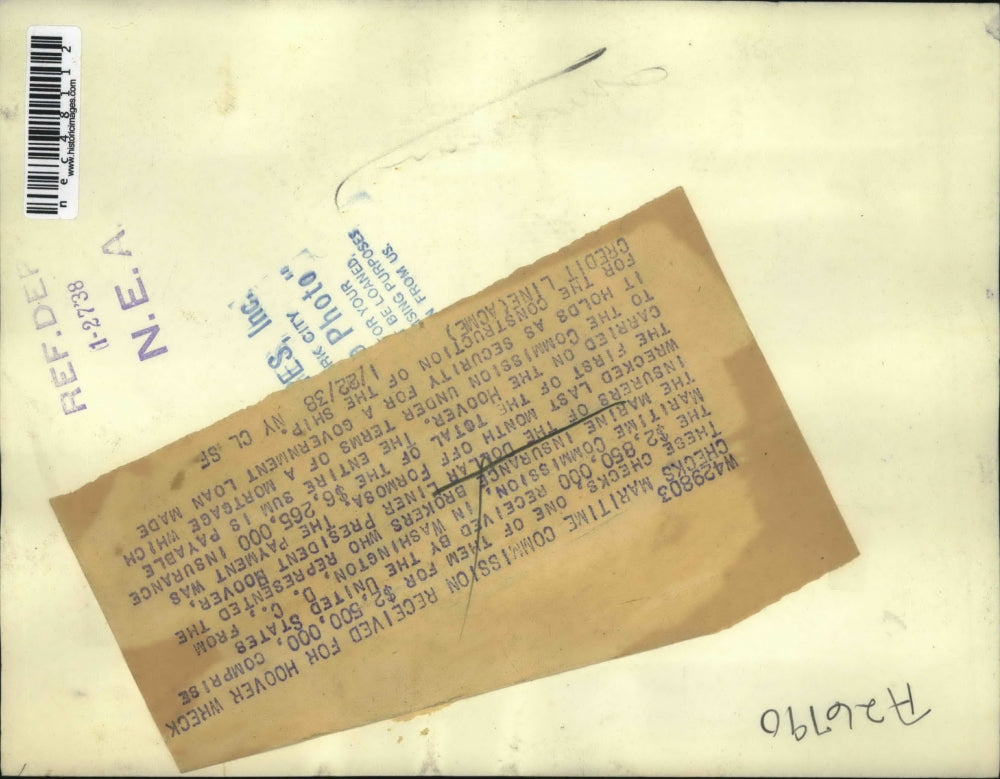 W429803
CHECKS MARITIME COMMISSION RECEIVED FOR HOOVER WRECK
THESE CHECKS, ONE OF THEM FOR $2,500,000, COMPRISE
THE $2,850,000 RECEIVED BY THE UNITED STATES
MARITIME COMMISSION IN WASHINGTON, D. C., FROM
THE MARINE INSURANCE BROKERS WHO REPRESENTED THE
INSURERS OF THE DOLLAR LINER PRESIDENT HOOVER,
WRECKED LAST MONTH OFF FORMOSA. THE PAYMENT WAS
THE FIRST OF THE TOTAL OF $6,265,000 INSURANCE
CARRIED ON THE HOOVER. THE ENTIRE SUM IS PAYABLE
TO THE COMMISSION UNDER THE TERMS OF A MORTGAGE WHICH
IT HOLDS AS SECURITY FOR A GOVERNMENT LOAN MADE
FOR THE CONSTRUCTION OF THE SHIP.
CREDIT LINE (ACME) 1/22/38 NY CL SF
A26790
REF. DEP
11-27'38
N.E.A.
ES, Inc.
RK CITY
Photo"
FOR YOUR
BE LOANED,
SING PURPOSES
FROM US.
nec48112
www.historicimages.com